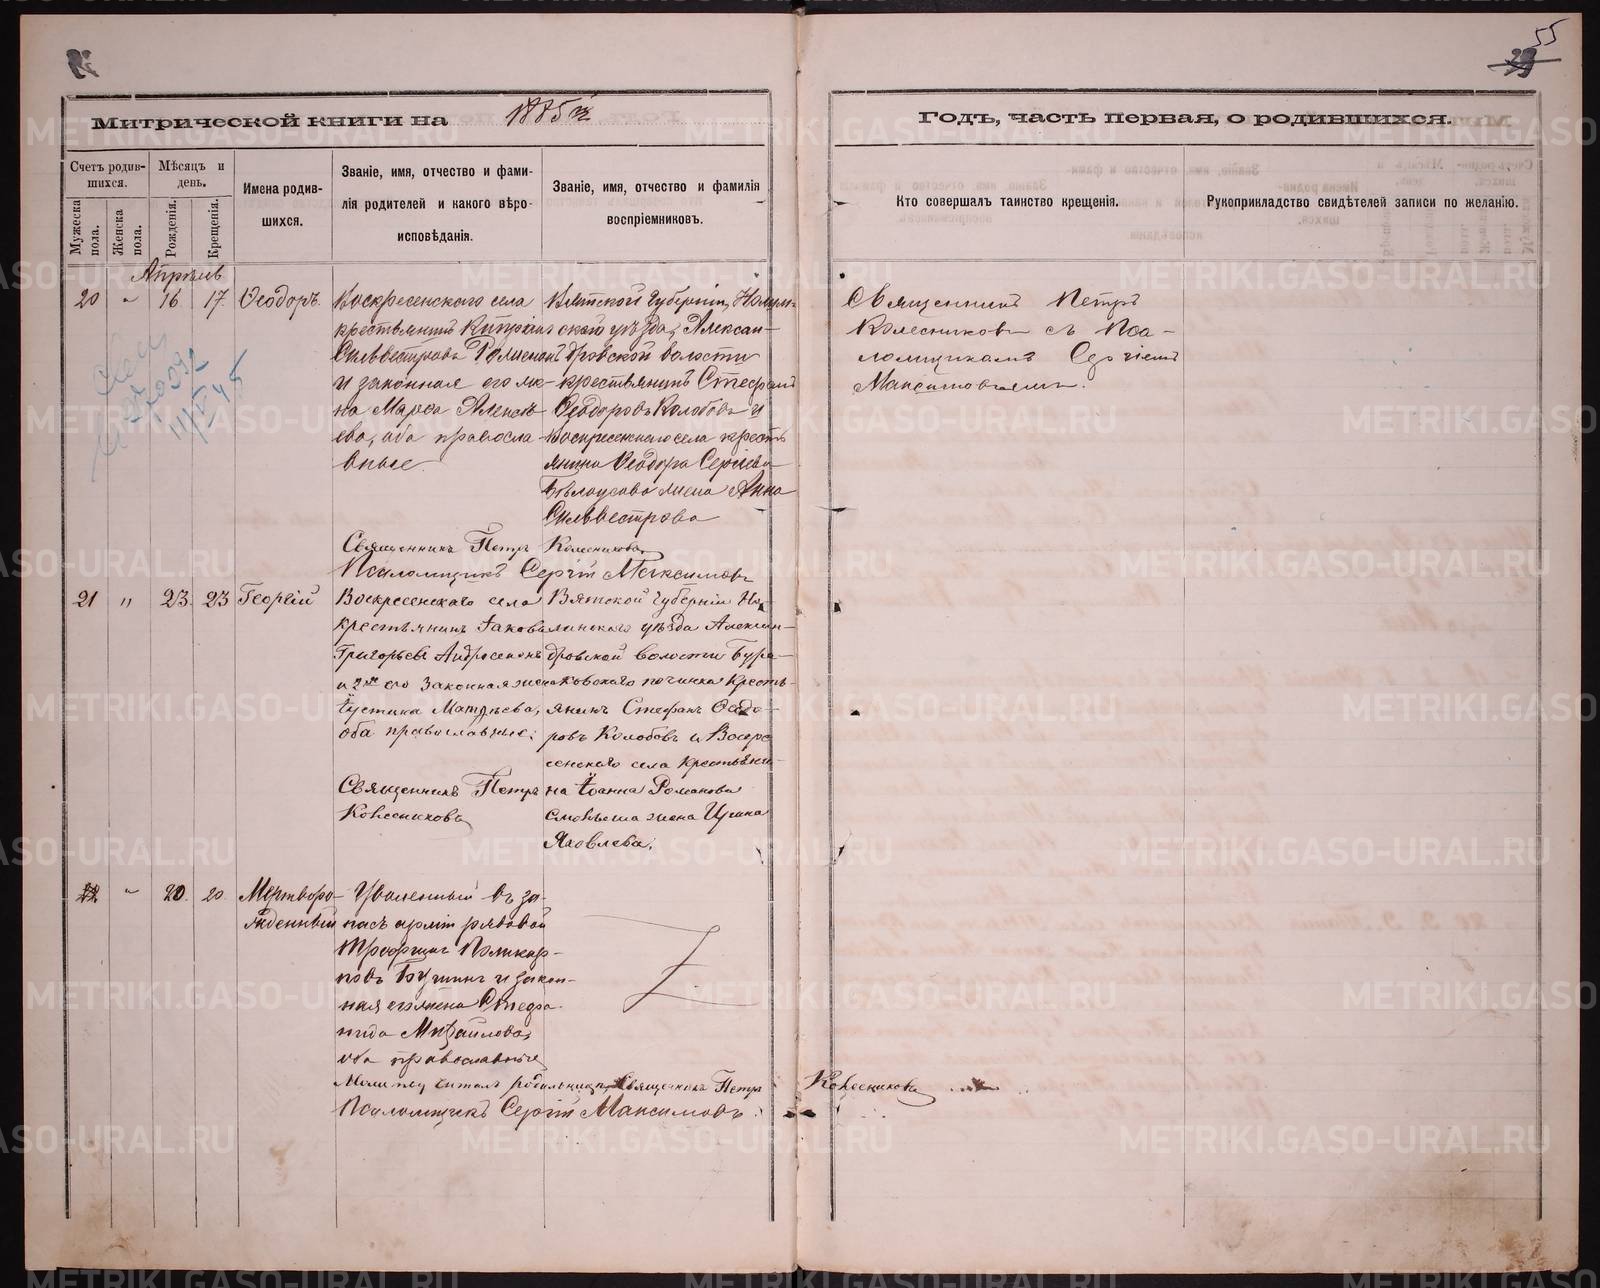 55
Митрической книги на 1885 й
Годъ, часть первая, о родившихся.
Счетъ родив-
шихся.
Мѣсяцъ и
день.
Мужеска
пола.
Женска
пола.
Рожденія.
Крещенія.
Имена родив-
шихся.
Званіе, имя, отчество и фами-
лія родителей и какого вѣро-
исповѣданія.
Званіе, имя, отчество и фамилія
воспріемниковъ.
Кто совершалъ таинство крещенія.
Рукоприкладство свидѣтелей записи по желанію.
Апрѣль
20 " 16 17 Ѳеодоръ.
Воскресенскаго села
крестьянинъ
Сильвестровъ
и законная его же-
на Марѳа Алексѣ
ева, оба правосла
вные.
Вятской губерніи, Нолин-
скаго уѣзда, Алексан-
дровской волости
крестьянинъ Стефанъ
Ѳеодоровъ Колобовъ и
Воскресенскаго села кресть
янина Ѳеодора Сергіева
Бѣлоусова жена Анна
Сильвестрова
Священникъ Петръ
Колесниковъ съ Пса-
ломщикомъ Сергіемъ
Максимовымъ.
Священникъ Петръ Колесниковъ
Псаломщикъ Сергій Максимовъ
21 " 23. 23 Георгій
Воскресенскаго села
крестьянинъ Іаковъ
Григорьевъ
и 2ая его законная жена
Іустина Матѳѣева,
оба православные;
Вятской губерніи Но-
линскаго уѣзда Алексан-
дровской волости Бура-
ковскаго починка Кресть-
янинъ Стефанъ Ѳедо-
ровъ Колобовъ и Воскре
сенскаго села Крестьяни-
на Іоанна Романова
жена Ирина
Яковлева;
Священникъ Петръ
Колесниковъ
22 " 20. 20. Мертворо-
жденный
Уволенный въ за-
пасъ арміи рядовой
Трофимъ Поликар-
повъ и закон-
ная его жена Стефа-
нида Михайлова,
оба православные
Молитву читалъ родильницѣ Священникъ Петръ Колесниковъ
Псаломщикъ Сергій Максимовъ.
METRIKI.GASO-URAL.RU